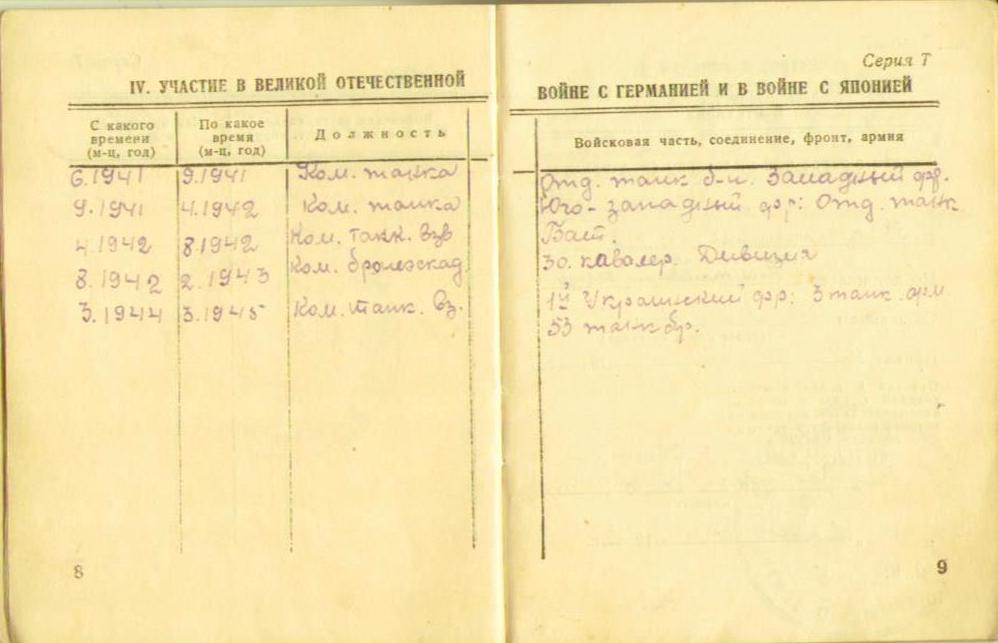 Серия Т
IV. УЧАСТИЕ В ВЕЛИКОЙ ОТЕЧЕСТВЕННОЙ
ВОЙНЕ С ГЕРМАНИЕЙ И В ВОЙНЕ С ЯПОНИЕЙ
С какого времени (м-ц, год)
По какое время (м-ц, год)
Должность
Войсковая часть, соединение, фронт, армия
6.1941 9.1941 Ком. танка
Отд. танк б-н. Западный фр.
9.1941 4.1942 Ком. танка
Юго-западный фр: Отд. танк
4.1942 8.1942 Ком. танк. взв
Бат.
8.1942 2.1943 Ком. бронеэскад.
30. кавалер. Дивизия
3.1944 3.1945 Ком. танк. вз.
1й Украинский фр: 3 танк. арм
53 танк бр.
8
9